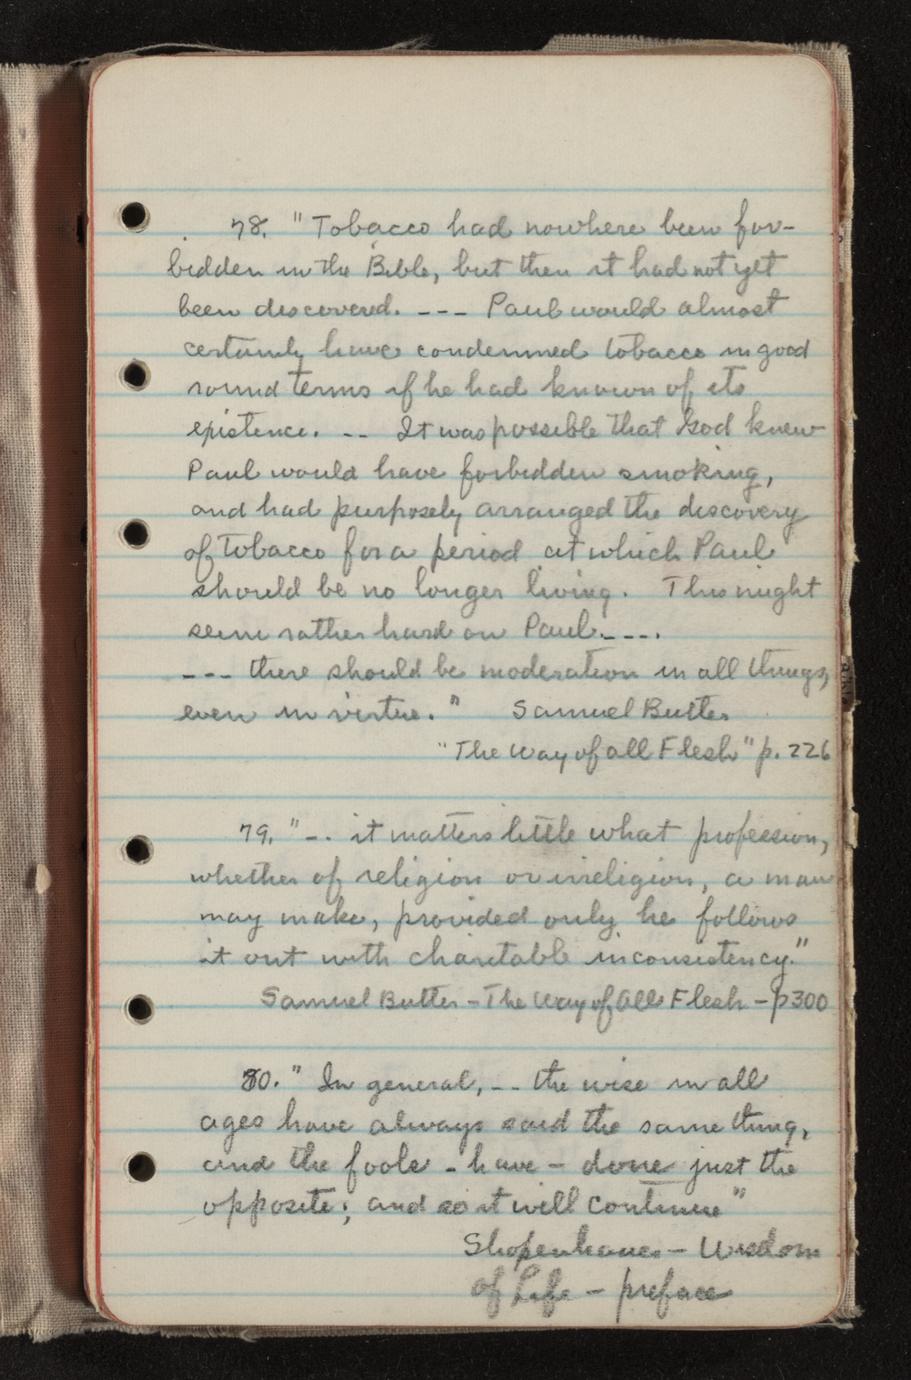 78. "Tobacco had nowhere been for-
bidden in the Bible, but then it had not yet
been discovered. --- Paul would almost
certainly have condemned tobacco in good
round terms if he had known of its
existence. -- It was possible that God knew
Paul would have forbidden smoking,
and had purposely arranged the discovery
of tobacco for a period at which Paul
should be no longer living. This might
seem rather hard on Paul.---.
--- there should be moderation in all things,
even in virtue." Samuel Butler
"The Way of all Flesh" p. 226
79. "-. it matters little what profession,
whether of religion or irreligion, a man
may make, provided only he follows
it out with charitable inconsistency."
Samuel Butler - The Way of All Flesh - p300
80. "In general, -- the wise in all
ages have always said the same thing,
and the fools - have - done just the
opposite; and so it will continue"
Shopenhauer - Wisdom
of Life - preface